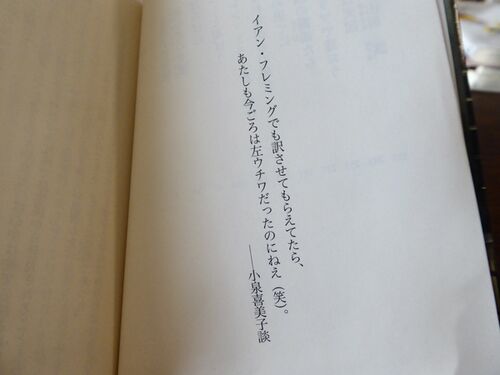 イアン・フレミングでも訳させてもらえてたら、
あたしも今ごろは左ウチワだったのにねえ（笑）。
――小泉喜美子談